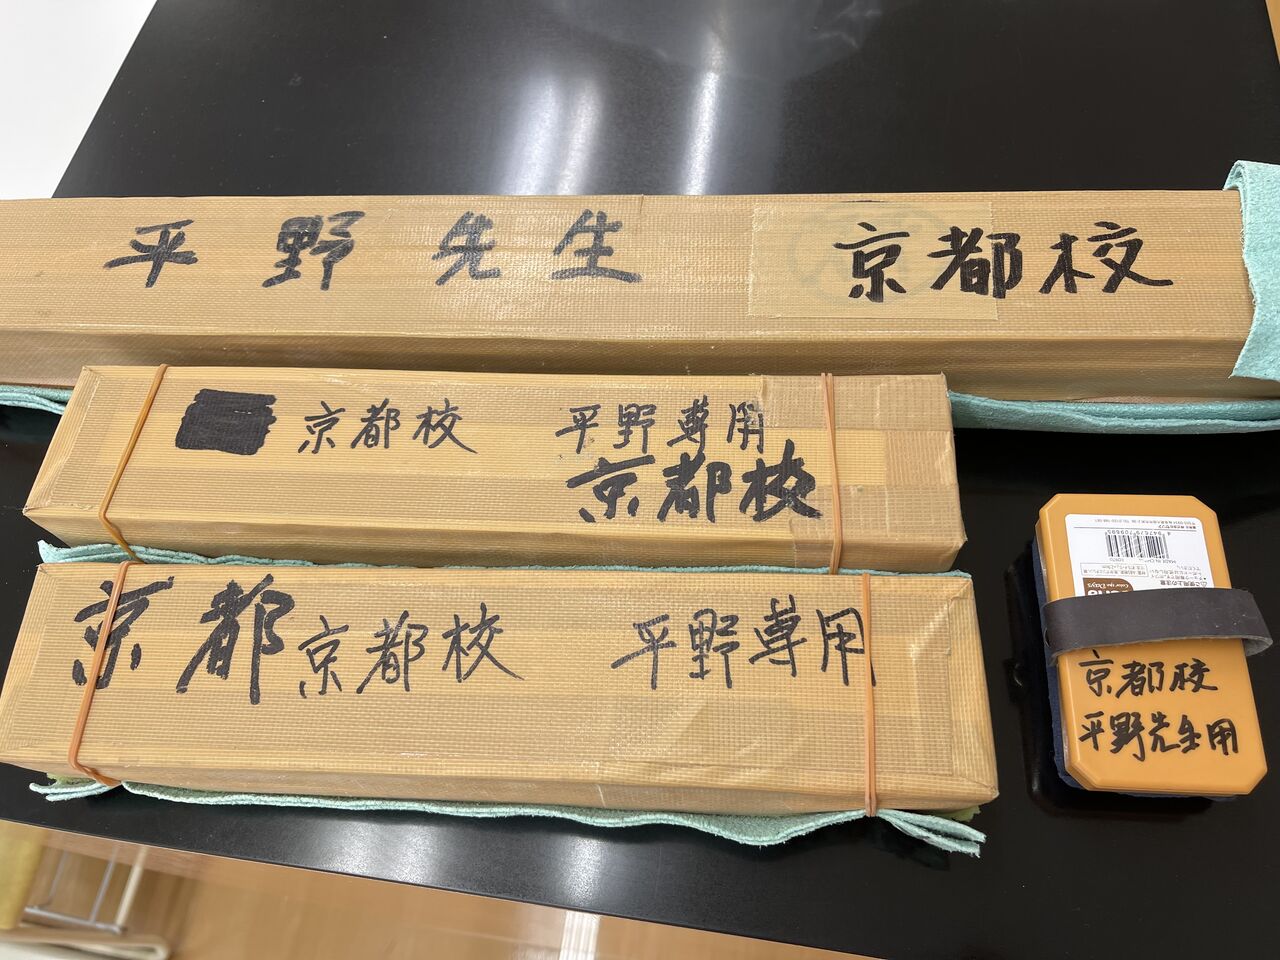 平野先生 京都校
京都校 平野専用
京都校
京都 京都校 平野専用
MADE IN CHINA
Color you Days
京都校
平野先生用